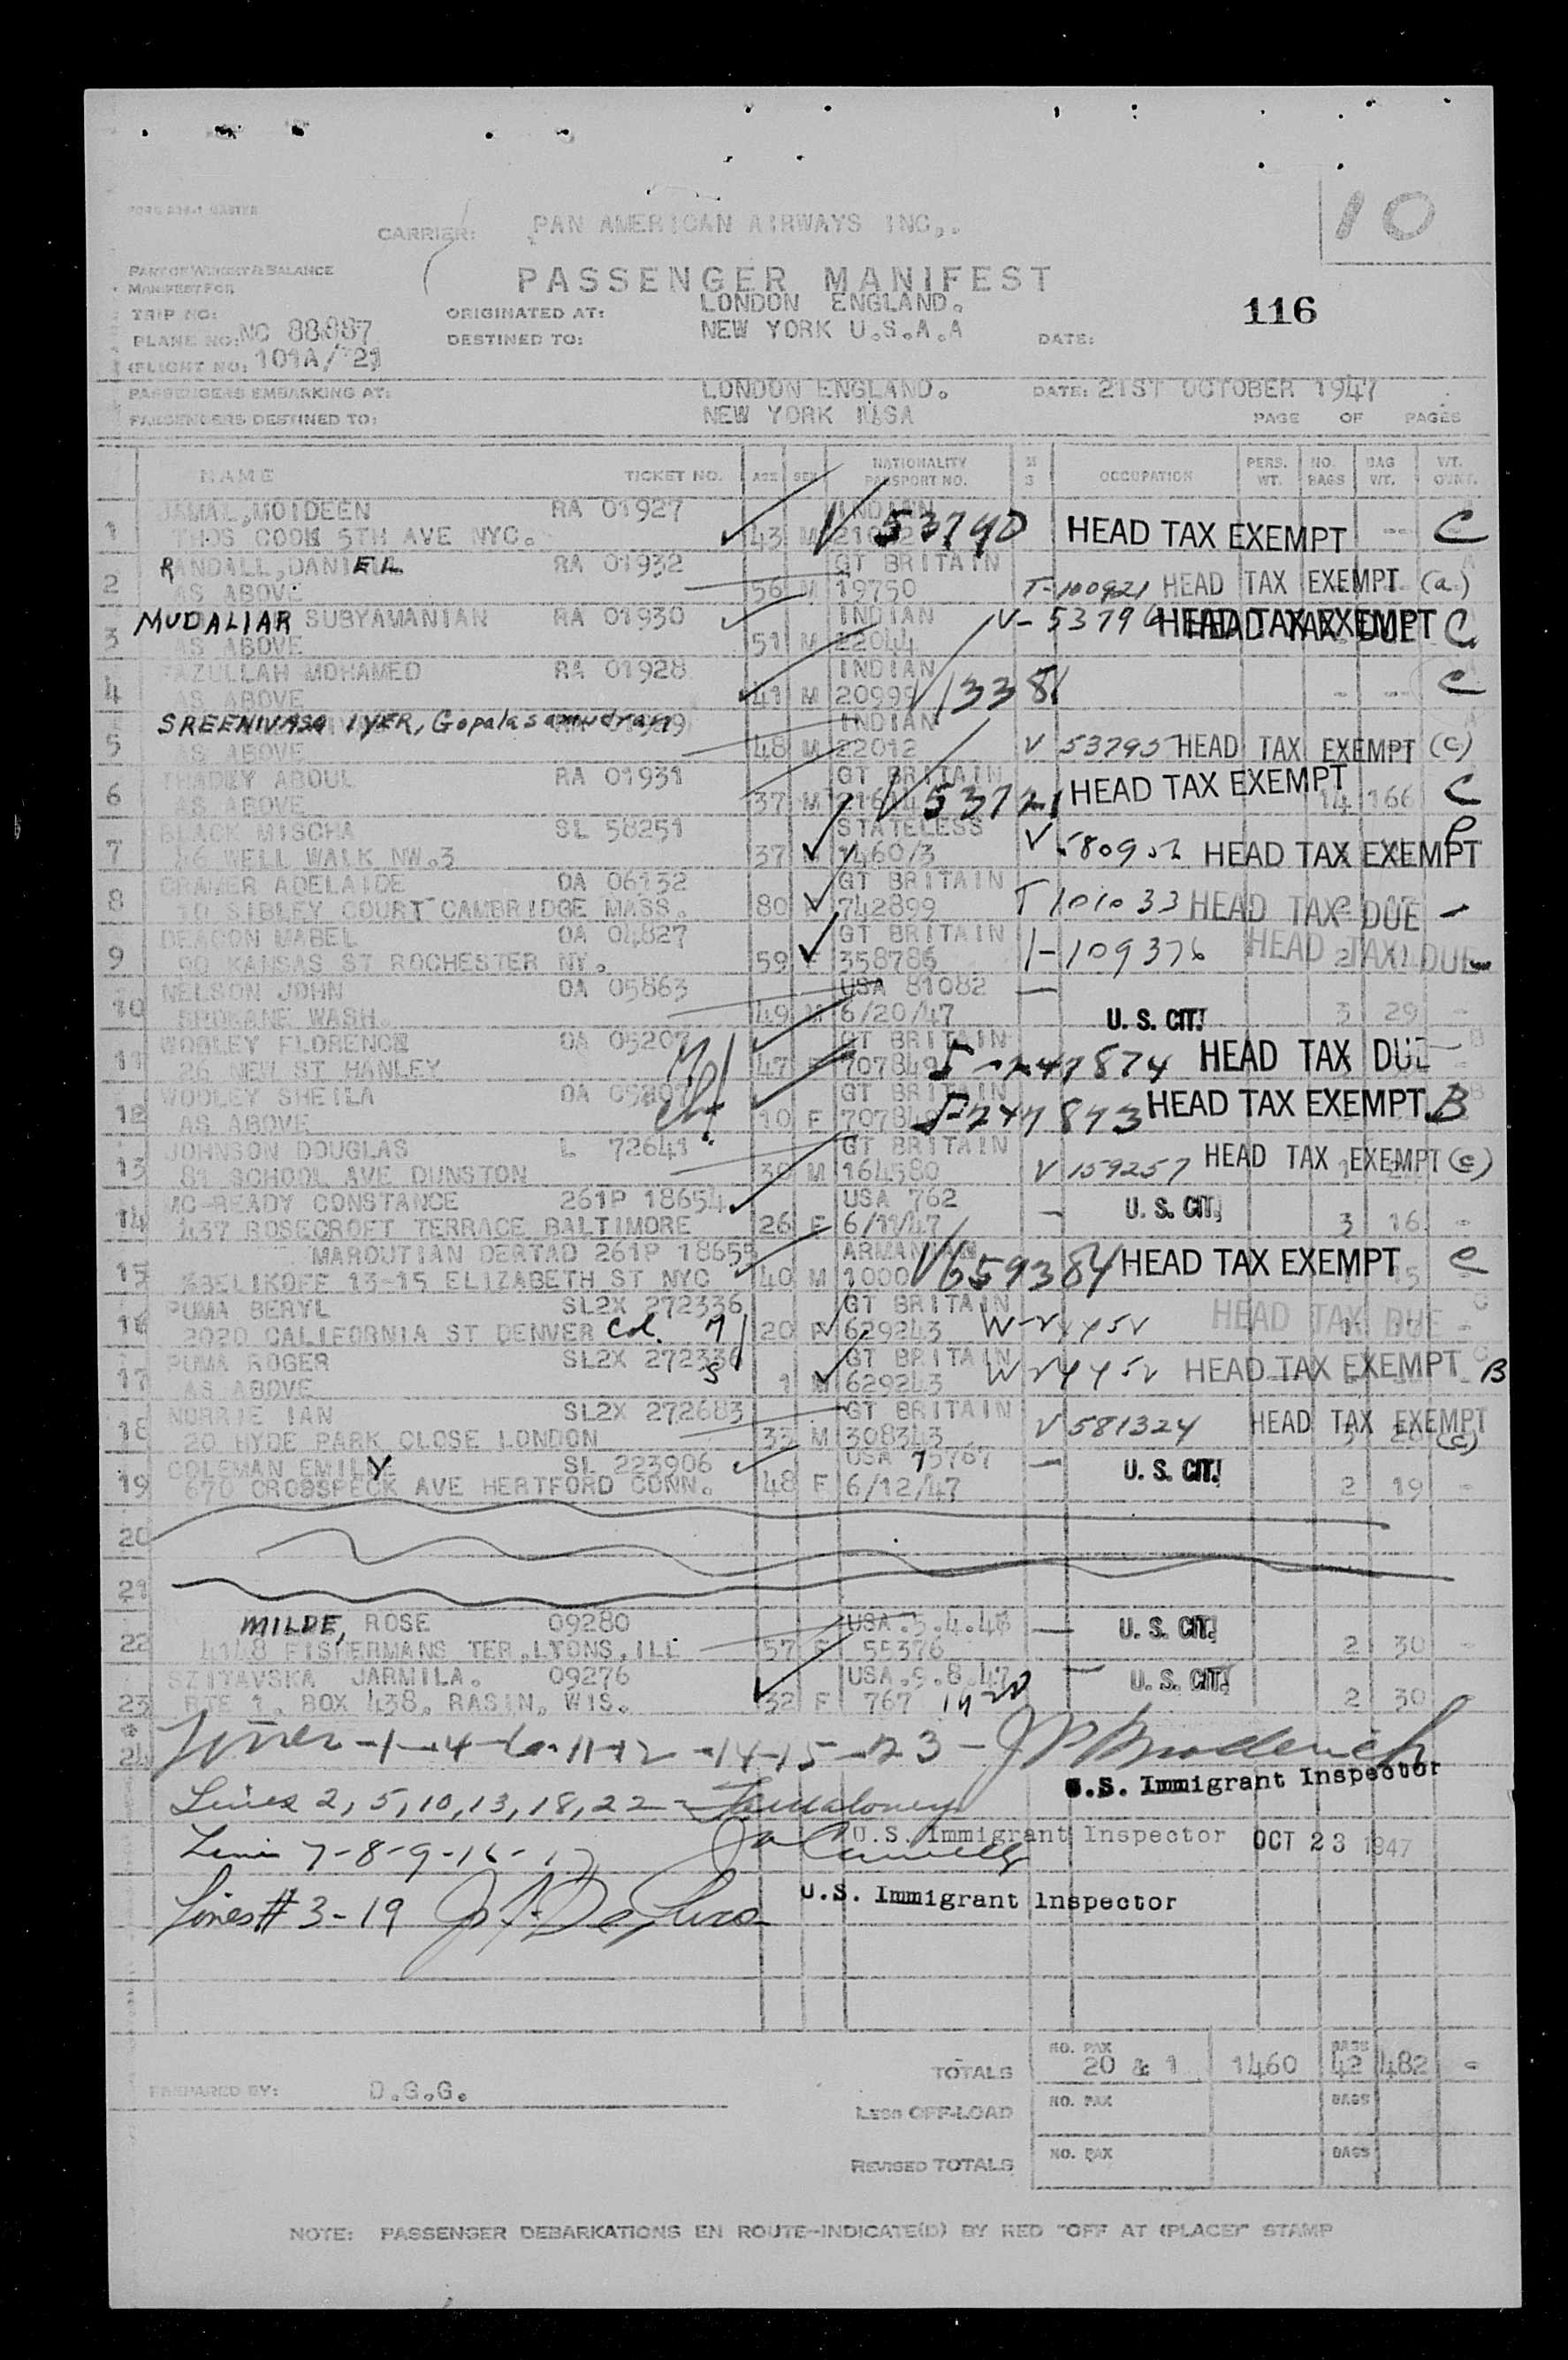 10
CARRIER: PAN AMERICAN AIRWAYS INC,.
PART OF WEIGHT & BALANCE
MANIFEST FOR
PASSENGER MANIFEST
116
TRIP NO:
ORIGINATED AT: LONDON ENGLAND.
PLANE NO: NC 88887
DESTINED TO: NEW YORK U.S.A.A DATE:
FLIGHT NO: 101A/ 21
PASSENGERS EMBARKING AT: LONDON ENGLAND. DATE: 21ST OCTOBER 1947
PASSENGERS DESTINED TO: NEW YORK USA PAGE OF PAGES
NAME TICKET NO. AGE SEX NATIONALITY PASSPORT NO. OCCUPATION PERS. WT. NO. BAGS BAG WT.
JAMAL,MOIDEEN RA 01927 INDIAN
1 THOS COOK 5TH AVE NYC. 43 M V 53790 HEAD TAX EXEMPT -- C
RANDALL,DANIEL RA 01932 GT BRITAIN
2 AS ABOVE 56 M 19750 T-100921 HEAD TAX EXEMPT (a)
MUDALIAR SUBYAMANIAN RA 01930 INDIAN
3 AS ABOVE 51 M 22044 V-5379 HEAD TAX EXEMPT C
FAZULLAH MOHAMED RA 01928 INDIAN
4 AS ABOVE 41 M 20999 V13381 - -- C
SREENIVASA IYER, Gopalasamudran INDIAN
5 AS ABOVE 48 M 22012 V 53795 HEAD TAX EXEMPT (C)
THADEY ABOUL RA 01931 GT BRITAIN
6 AS ABOVE 37 M V53721 HEAD TAX EXEMPT 14 166 C
BLACK MISCHA SL 58251 STATELESS
7 46 WELL WALK NW.3 37 M 1460/3 V HEAD TAX EXEMPT
CRAMER ADELAIDE OA 06132 GT BRITAIN
8 10 SIBLEY COURT CAMBRIDGE MASS. 80 F 742899 T 101033 HEAD TAX DUE -
DEACON MABEL OA 04827 GT BRITAIN
9 90 KANSAS ST ROCHESTER NY. 59 F 358785 109376 HEAD TAX DUE
NELSON JOHN OA 05863 USA 81082 —
10 SPOKANE WASH. 49 M 6/20/47 U.S. CIT. 3 29 -
WOOLEY FLORENCE OA 05207 GT BRITAIN
11 26 NEW ST HANLEY 47 F 707849 247874 HEAD TAX DUE
WOOLEY SHEILA OA GT BRITAIN
12 AS ABOVE 10 F HEAD TAX EXEMPT B
JOHNSON DOUGLAS L 72641 GT BRITAIN
13 81 SCHOOL AVE DUNSTON 30 M 164580 V 159257 HEAD TAX EXEMPT (c)
MC-READY CONSTANCE 261P 18654 USA 762
14 437 ROSECROFT TERRACE BALTIMORE 26 F 6/11/47 — U.S. CIT. 3 16 -
MAROUTIAN DERTAD 261P 18655 ARMANIAN
15 ABELIKOFF 13-15 ELIZABETH ST NYC 40 M 1000 V659384 HEAD TAX EXEMPT C
PUMA BERYL SL2X 272336 GT BRITAIN
16 2020 CALIFORNIA ST DENVER Col. 20 F 629243 HEAD TAX DUE
PUMA ROGER SL2X 272336 GT BRITAIN
17 AS ABOVE 1 M 629243 HEAD TAX EXEMPT B
NORRIE IAN SL2X 272683 GT BRITAIN
18 20 HYDE PARK CLOSE LONDON 33 M 308343 V 581324 HEAD TAX EXEMPT (C)
COLEMAN EMILY SL 223906 USA 75767 —
19 670 CROSSPECK AVE HERTFORD CONN. 48 F 6/12/47 U.S. CIT. 2 19 -
20
21
MILDE, ROSE 09280 USA.5.4.46 — U.S. CIT.
22 4148 FISHERMANS TER.LYONS.ILL 57 F 55376 2 30 -
SZITAVSKA JARMILA. 09276 USA.9.8.47 — U.S. CIT.
23 RTE 1. BOX 438. RASIN. WIS. 32 F 767 2 30 -
24 Lines -1-4-6-11-12-14-15-23- J P Broderick
U.S. Immigrant Inspector
Lines 2, 5, 10, 13, 18, 22 - Maloney
Line 7-8-9-16-17 U.S. Immigrant Inspector OCT 23 1947
Lines # 3-19 U.S. Immigrant Inspector
TOTALS NO. PAX 20 & 1 1460 BAGS 42 482 -
PREPARED BY: D.G.G.
Less OFF-LOAD NO. PAX BAGS
REVISED TOTALS NO. PAX BAGS
NOTE: PASSENGER DEBARKATIONS EN ROUTE-INDICATE(D) BY RED "OFF AT (PLACE)" STAMP